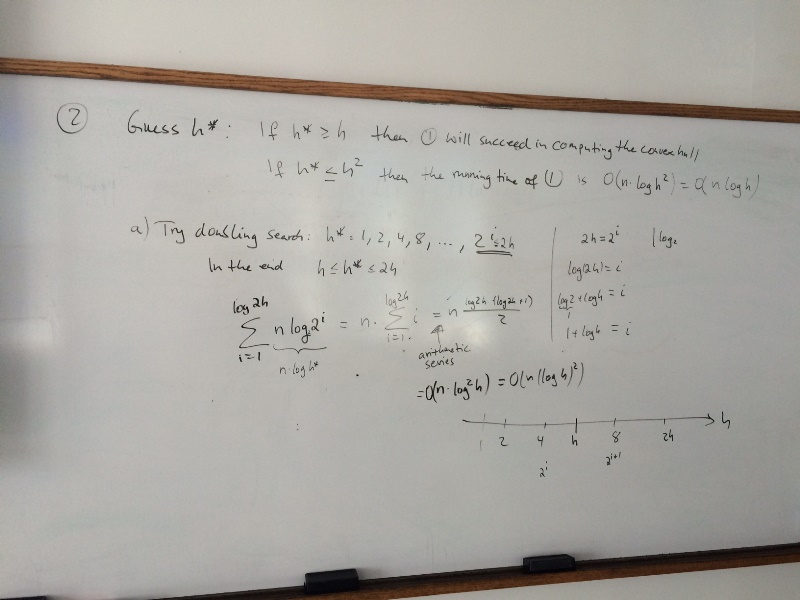 ② Guess h*: If h* ≥ h then ① will succeed in computing the convex hull
If h* ≤ h² then the running time of ① is O(n·log h²) = O(n log h)
a) Try doubling search: h* = 1, 2, 4, 8, ..., 2^i ≤ 2h
In the end h ≤ h* ≤ 2h
∑_{i=1}^{log 2h} n log 2^i = n · ∑_{i=1}^{log 2h} i = n (log 2h (log 2h + 1))/2
n·log h*
arithmetic
series
= O(n·log² h) = O(n (log h)²)
2h = 2^i | log₂
log(2h) = i
log 2 + log h = i
1 + log h = i
1 2 4 h 8 2h h
2^i 2^{i+1}